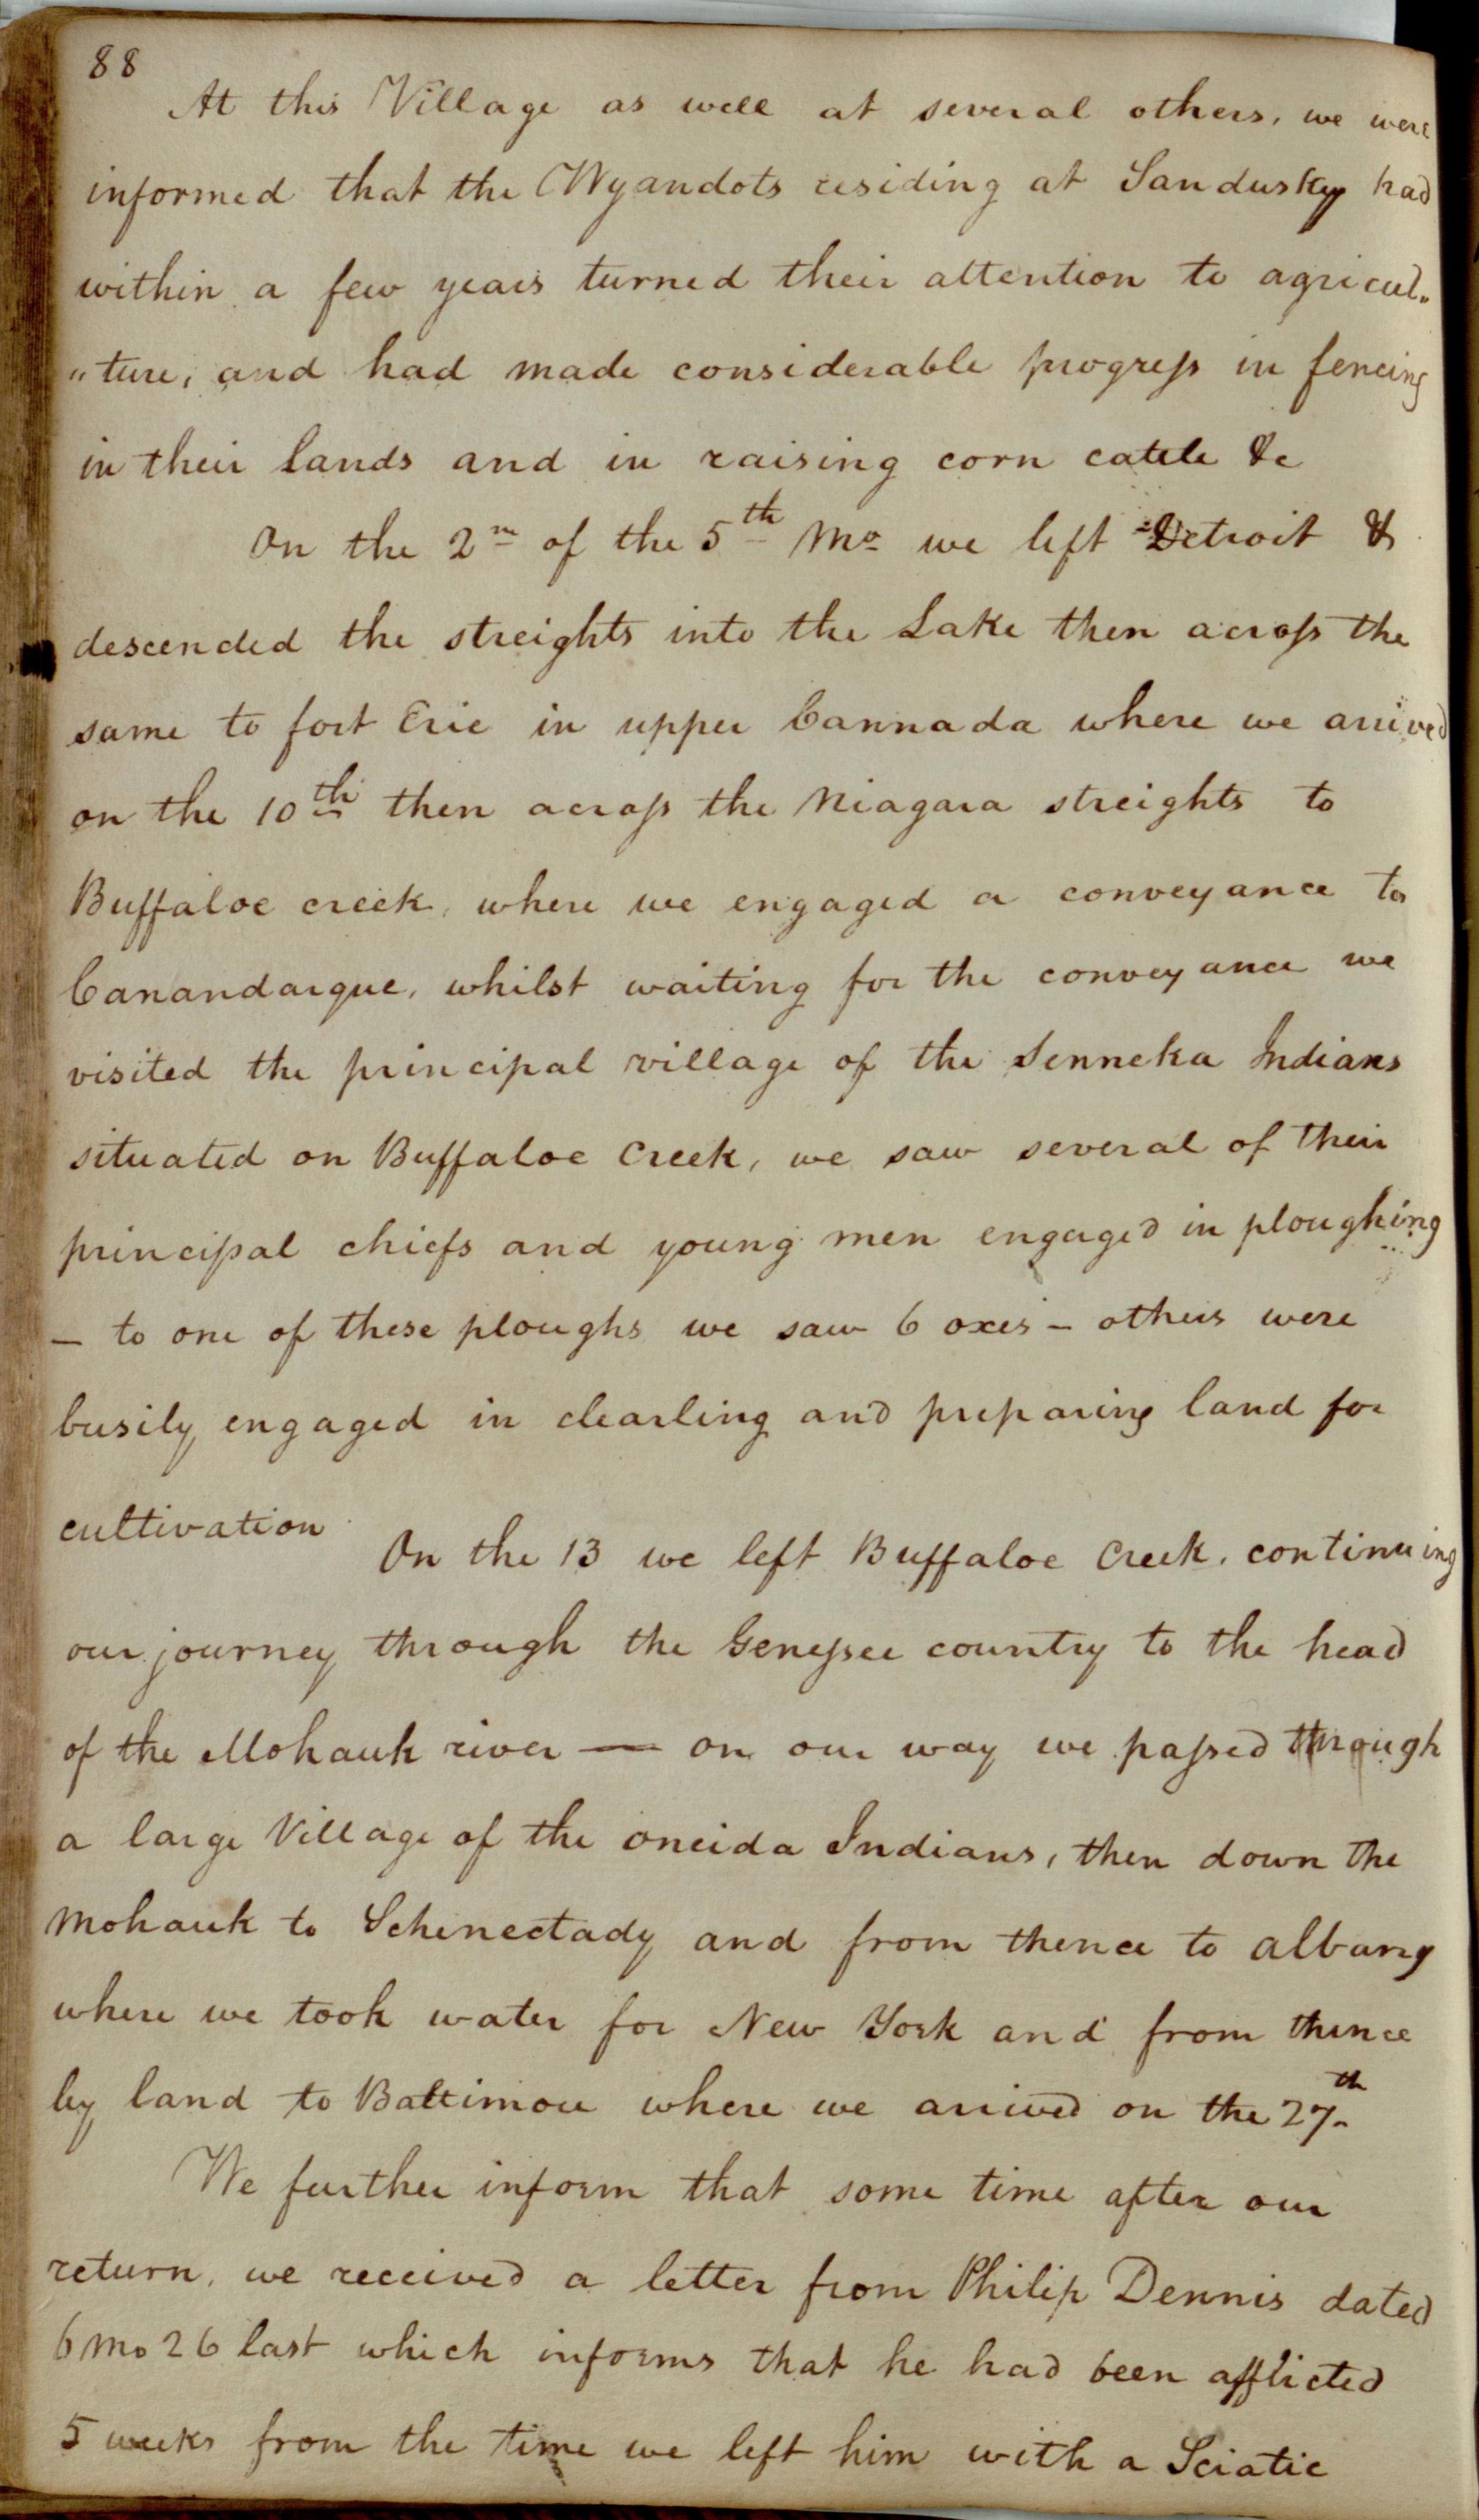 88
At this Village as well at several others, we were
informed that the Wyandots residing at Sandusky had
within a few years turned their attention to agricul„
„ture, and had made considerable progreſs in fencing
in their lands and in raising corn cattle &c
On the 2nd of the 5th Mo we left Detroit &
descended the streights into the Lake then acroſs the
same to fort Erie in upper Cannada where we arrived
on the 10th then acroſs the Niagara streights to
Buffaloe creek, where we engaged a conveyance to
Canandargue, whilst waiting for the conveyance we
visited the principal village of the Senneka Indians
situated on Buffaloe Creek, we saw several of their
principal chiefs and young men engaged in ploughing
— to one of these ploughs we saw 6 oxes – others were
busily engaged in clearling and preparing land for
cultivation
On the 13 we left Buffaloe Creek, continuing
our journey through the Geneſsee country to the head
of the Mohauk river — on our way we paſsed through
a large Village of the oneida Indians, then down the
Mohauk to Schenectady and from thence to albany
where we took water for New York and from thence
by land to Baltimore where we arrived on the 27th
We further inform that some time after our
return, we received a letter from Philip Dennis dated
6 Mo 26 last which informs that he had been afflicted
5 weeks from the time we left him with a Sciatic